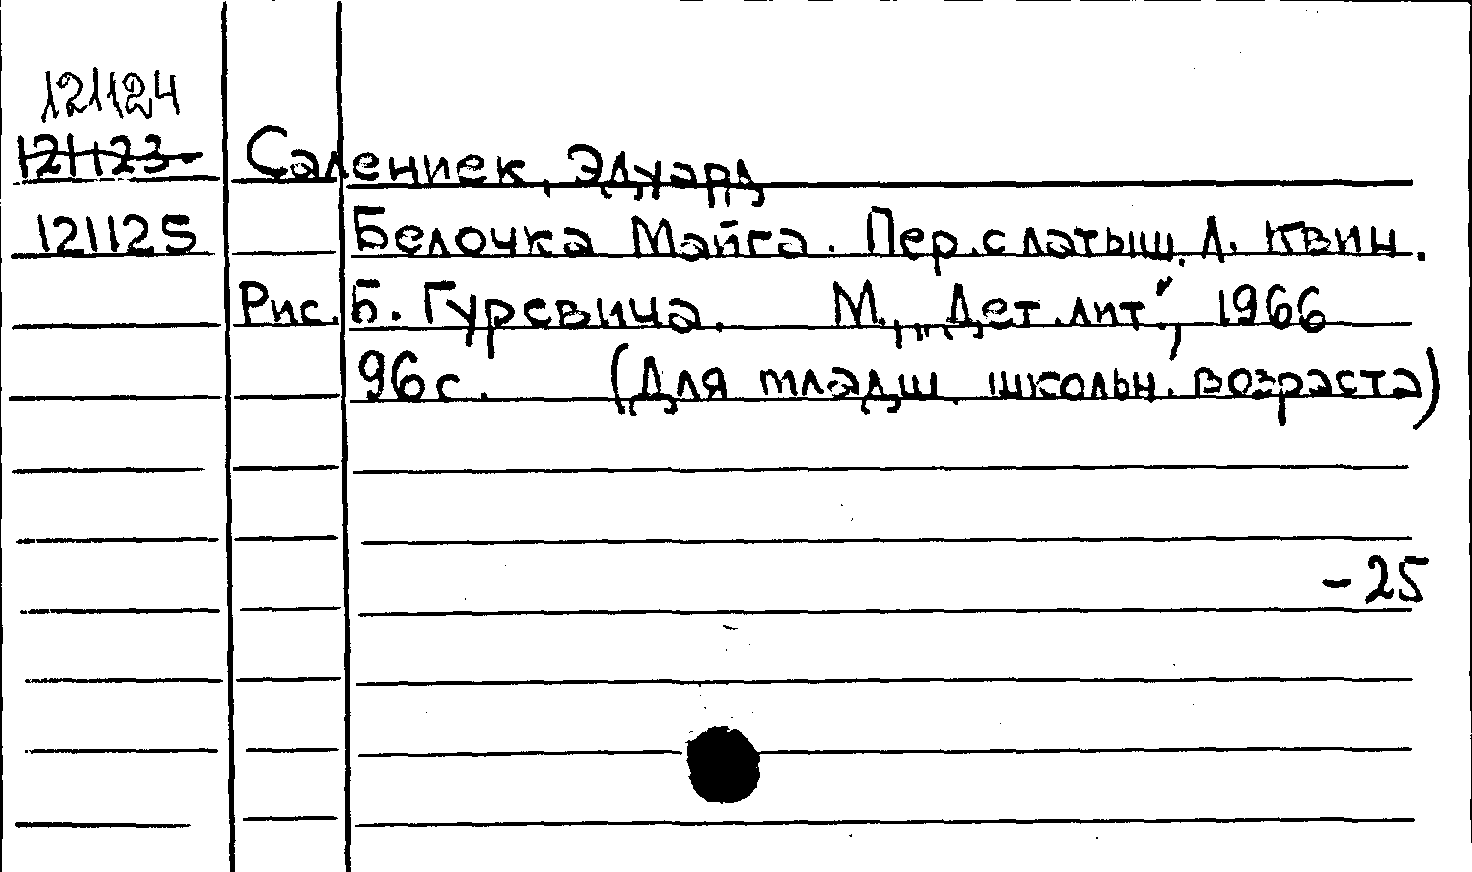 121124
121123 Салениек, Эдуард
121125 Белочка Майга. Пер. с латыш. Л. Квин.
Рис. Б. Гуревича. М., „Дет. лит.", 1966
96 с. (Для младш. школьн. возраста)
-25